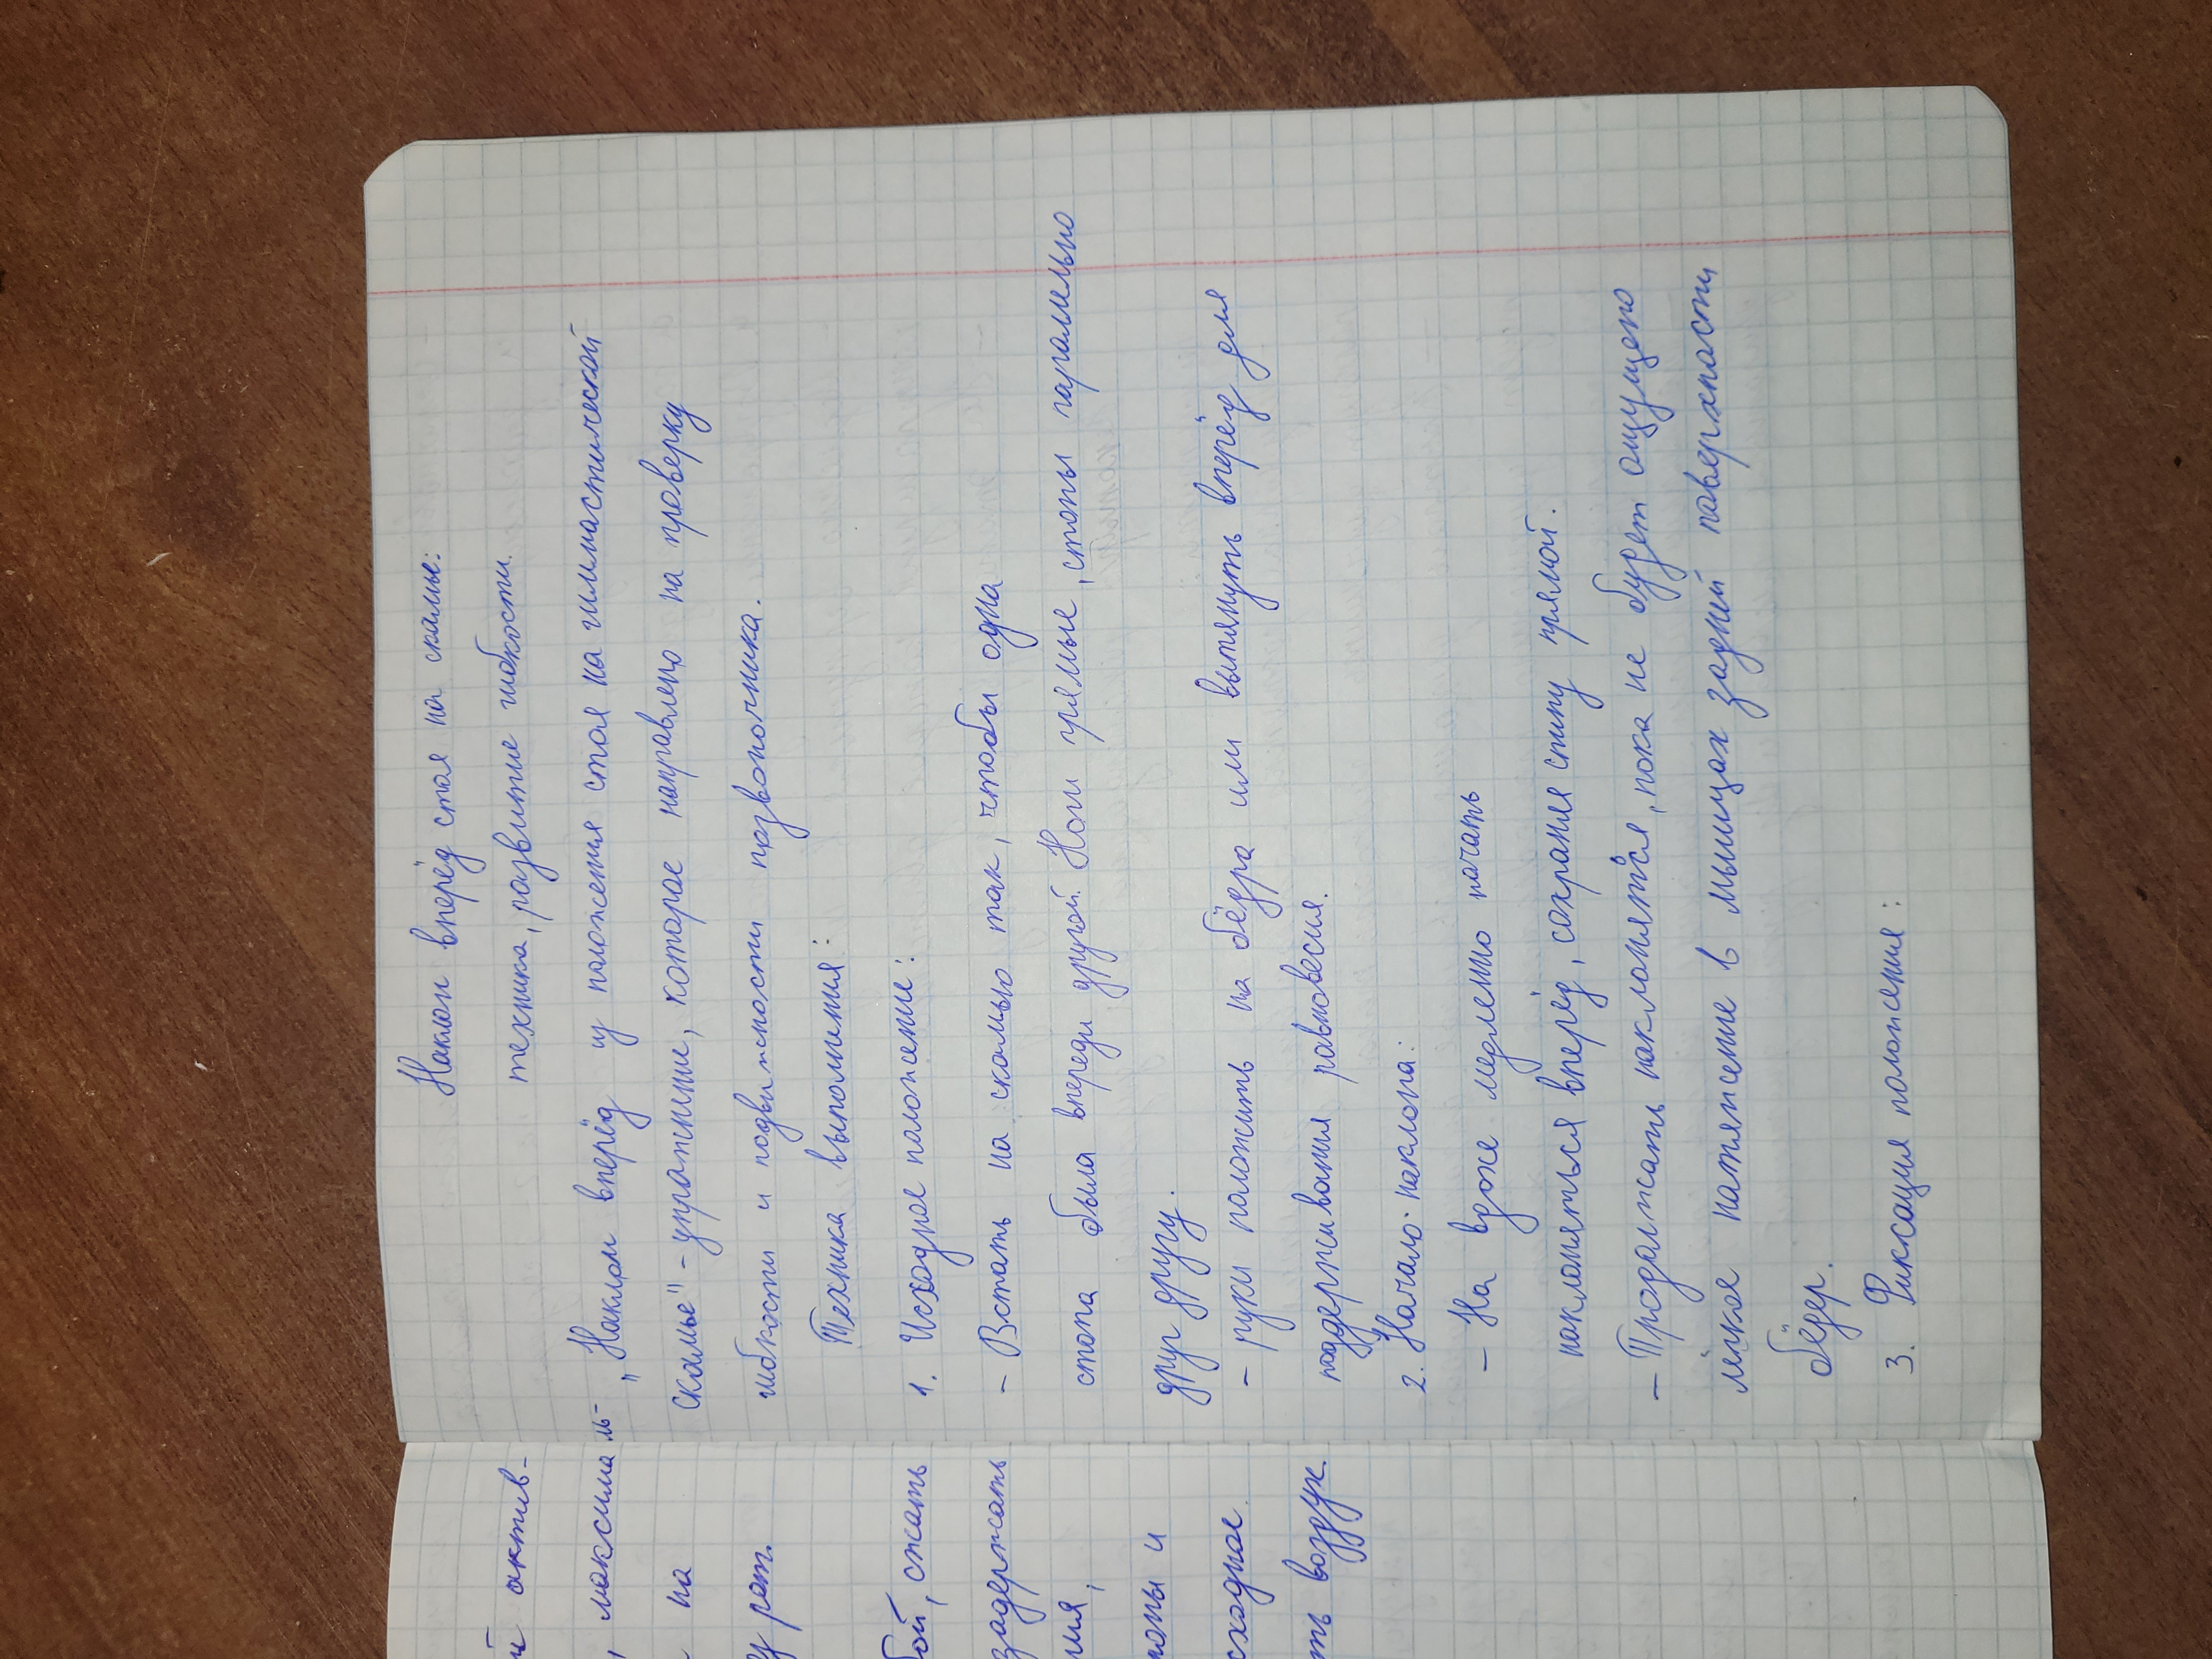 Наклон вперёд стоя на скамье:
техника, развитие гибкости.
„Наклон вперёд из положения стоя на гимнастической
скамье" - упражнение, которое направлено на проверку
гибкости и подвижности позвоночника.
Техника выполнения:
1. Исходное положение:
- Встать на скамью так, чтобы одна
стопа была впереди другой. Ноги прямые, стопы паралельно
друг другу.
- руки положить на бёдра или вытянуть вперёд для
поддерживания равновесия.
2. Начало наклона:
- На вдохе медленно начать
наклоняться вперёд, сохраняя спину прямой.
- Продолжать наклонятьса, пока не будет ощущено
лёгкое натяжение в мышцах задней поверхности
бёдер.
3. Фиксация положения:
й актив-
, максималь-
на
у рот.
бой, сжать
задержать
ния,
поны и
сходное.
ть воздух.